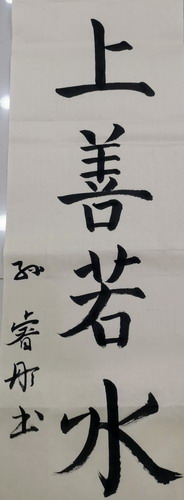 上善若水
孙睿彤书